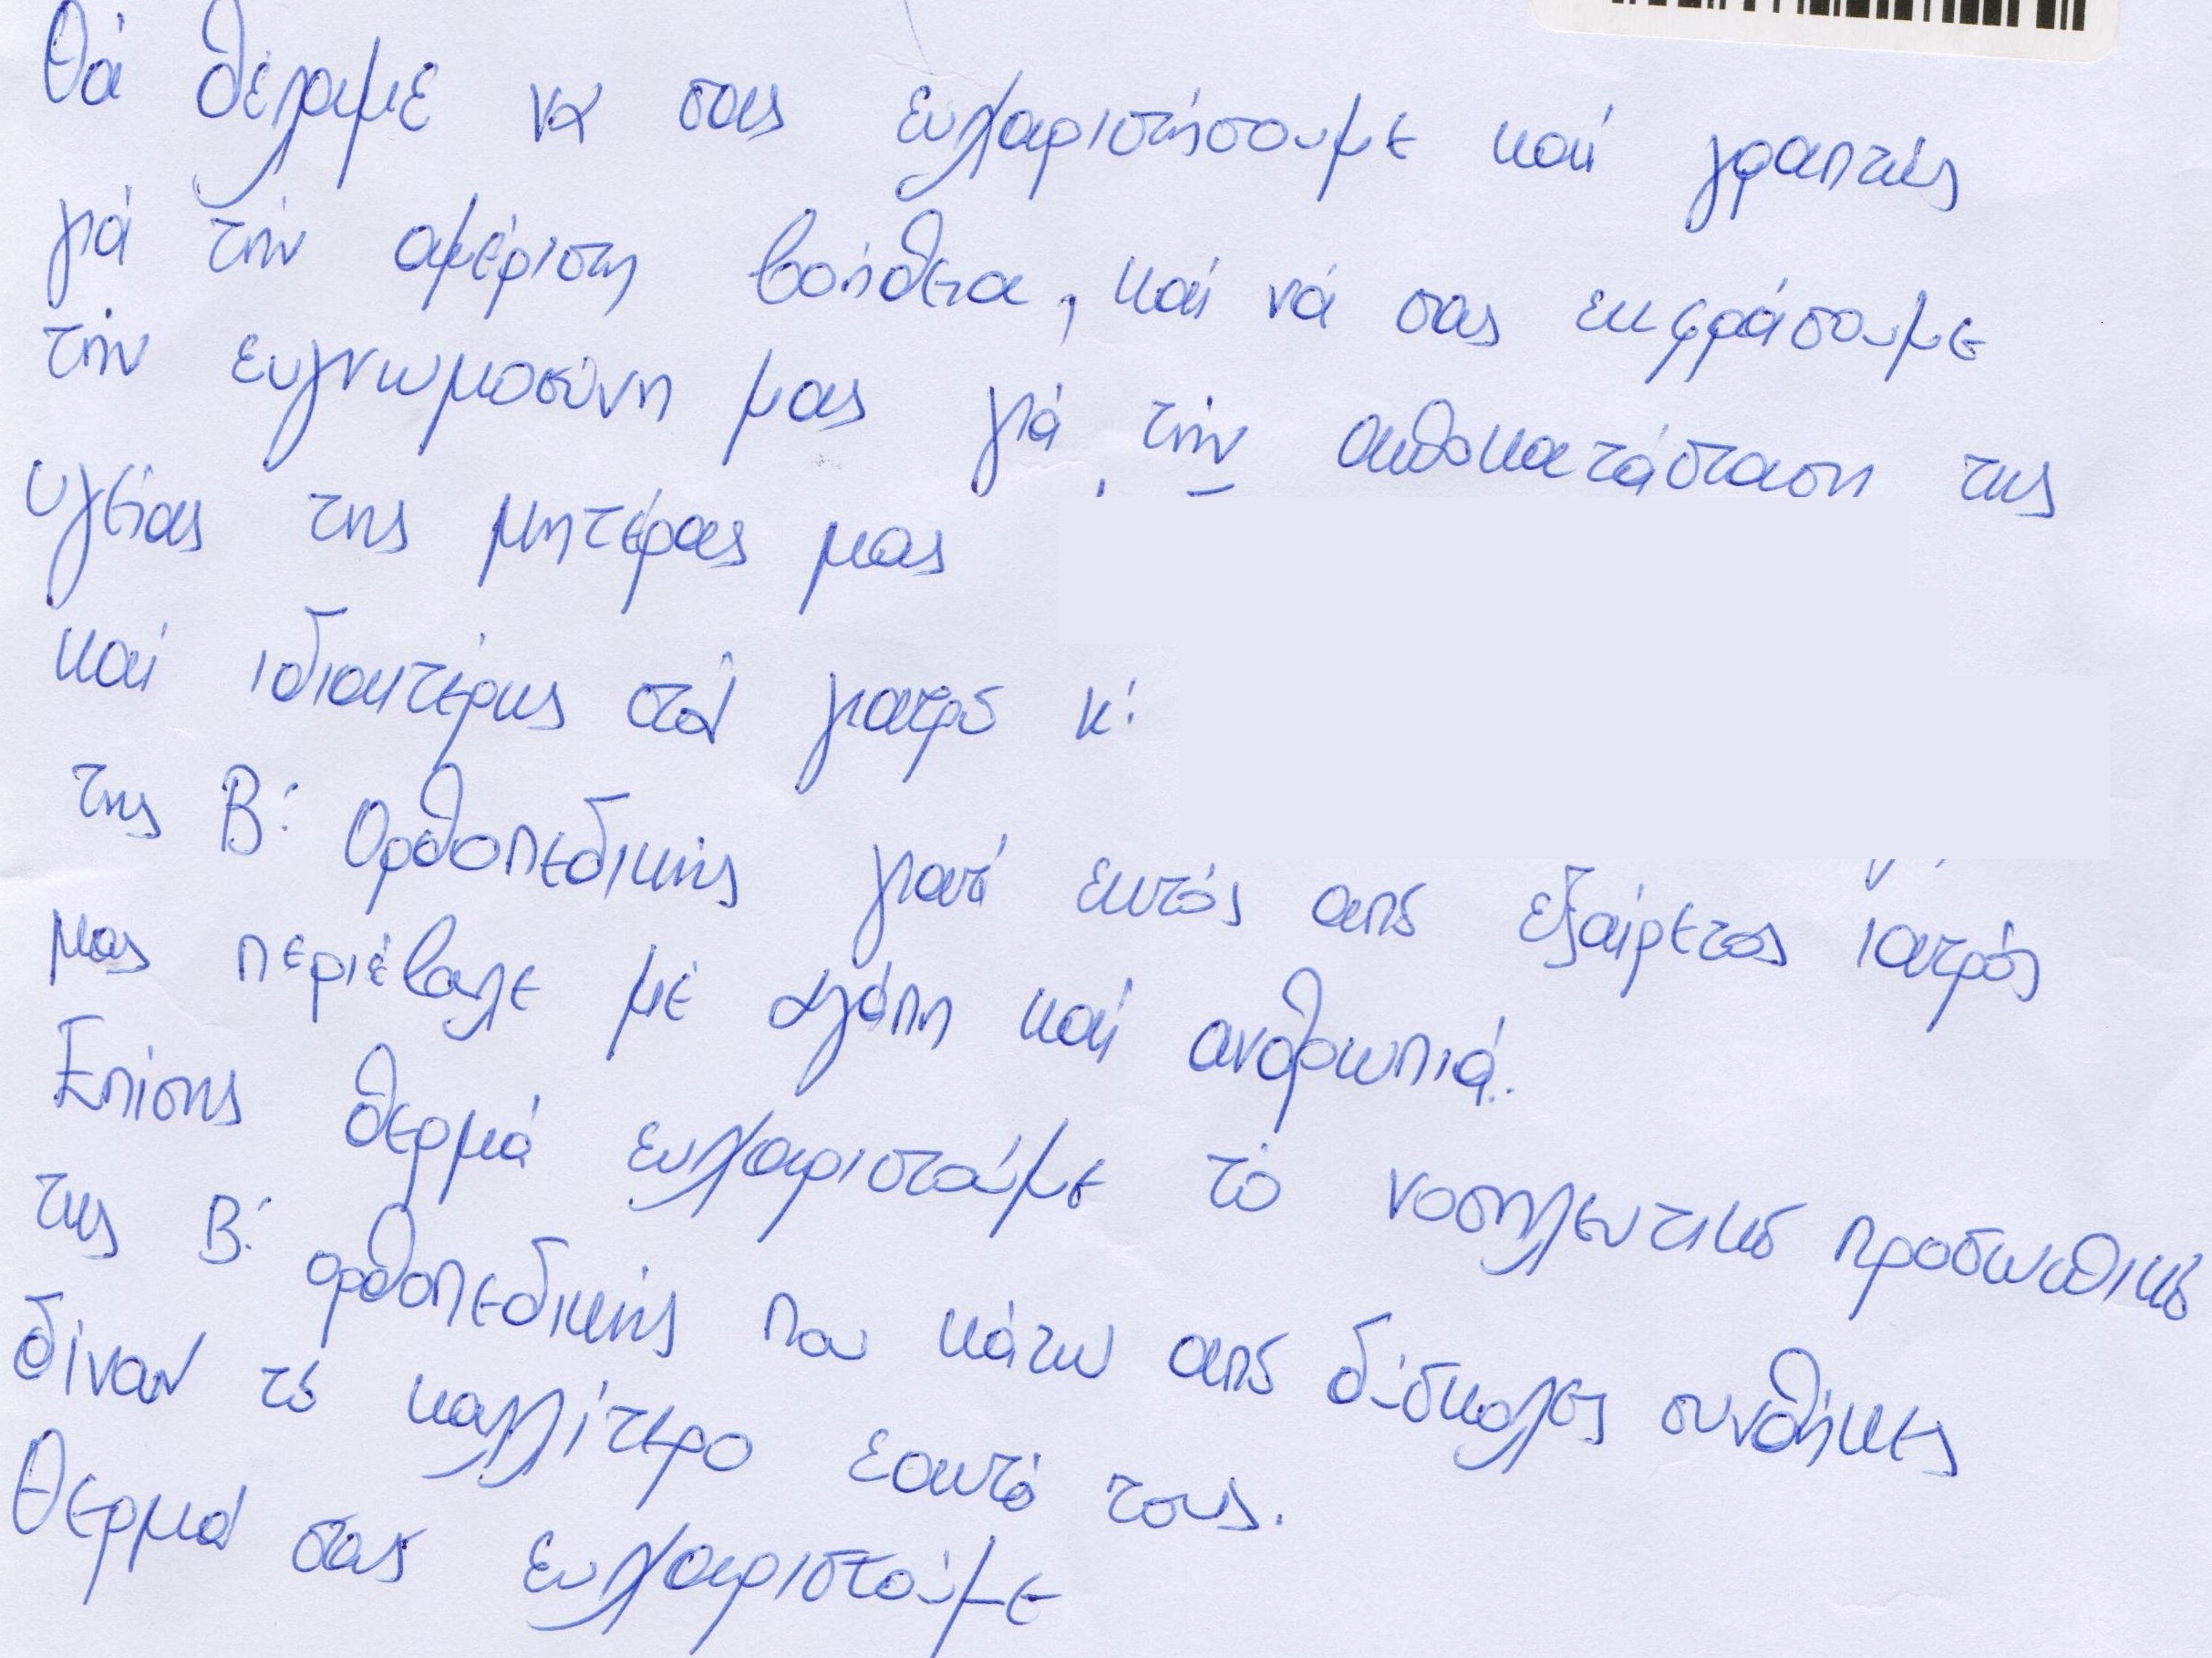 Θά θέλαμε να σας ευχαριστήσουμε καί γραπτώς
γιά τήν αμέριστη βοήθεια, καί νά σας εκφράσουμε
τήν ευγνωμοσύνη μας γιά τήν αποκατάσταση της
υγείας της μητέρας μας
καί ιδιαιτέρως στόν γιατρό κ:
της Β: Ορθοπεδικής γιατί εκτός από εξαίρετος ιατρός
μας περιέβαλε μέ αγάπη καί ανθρωπιά.
Επίσης θερμά ευχαριστούμε τό νοσηλευτικό προσωπικό
της Β: ορθοπεδικής που κάτω από δύσκολες συνθήκες
δίναν τό καλλίτερο εαυτό τους.
Θερμά σας ευχαριστούμε